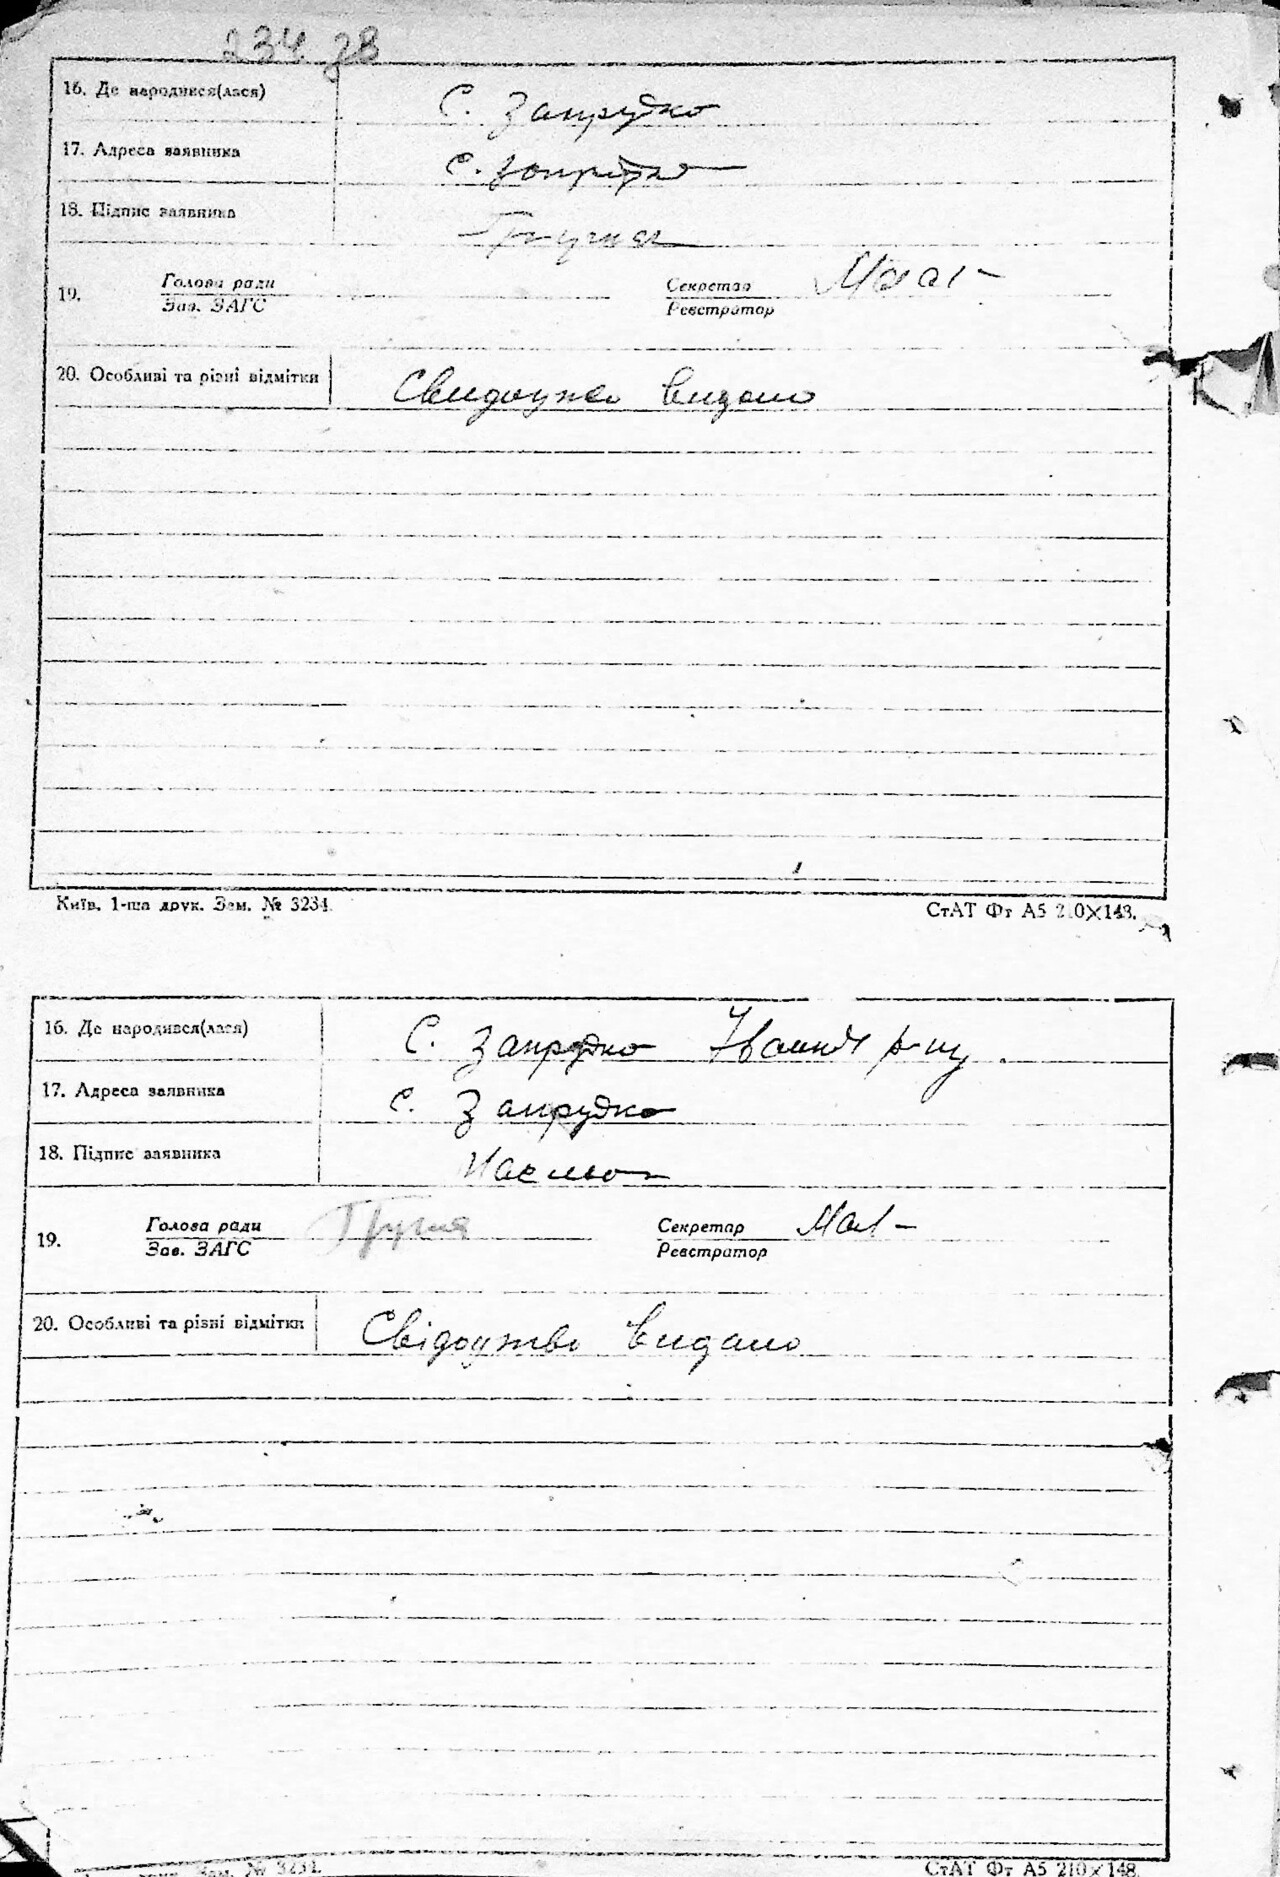 234 28
16. Де народився(лася) С. Запрудко
17. Адреса заявника С. Запрудко
18. Підпис заявника
19. Голова ради Секретар
Зав. ЗАГС Реєстратор
20. Особливі та різні відмітки Свидоцтво видано
Київ. 1-ша друк. Зам. № 3234.
СтАТ Фт А5 210×148.
16. Де народився(лася) С. Запрудко
17. Адреса заявника С. Запрудко
18. Підпис заявника
19. Голова ради Секретар
Зав. ЗАГС Реєстратор
20. Особливі та різні відмітки Свідоцтво видано
Зам. № 3234.
СтАТ Фт А5 210×148.